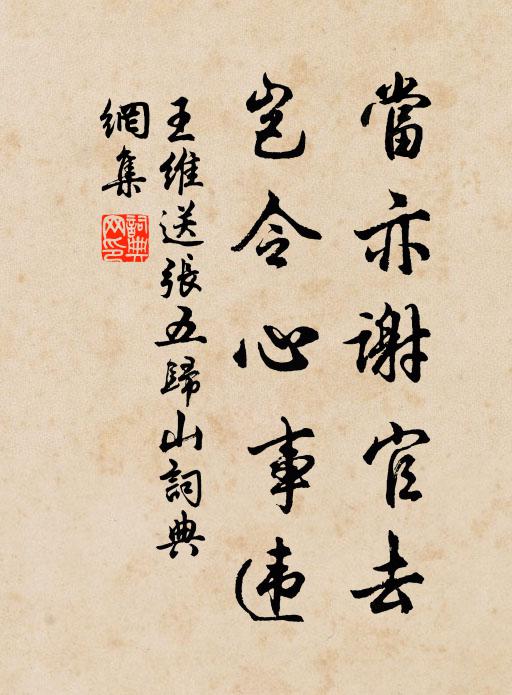 當亦謝官去
豈令心事违
王維送張五歸山詞典
網集
詞典網印